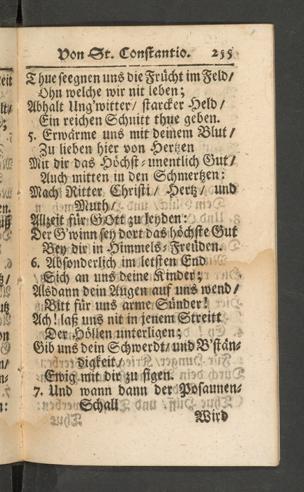 Von St. Constantio. 255
Thue seegnen uns die Frücht im Feld/
Ohn welche wir nit leben;
Abhalt Ung'witter/ starcker Held/
Ein reichen Schnitt thue geben.
5. Erwärme uns mit deinem Blut/
Zu lieben hier von Hertzen
Mit dir das Höchst-unentlich Gut/
Auch mitten in den Schmertzen:
Mach Ritter Christi/ Hertz/ und
Muth/
Allzeit für GOtt zu leyden:
Der G'winn sey dort das höchste Gut
Bey dir in Himmels-Freuden.
6. Absonderlich im letsten End
Sich an uns deine Kinder;
Alsdann dein Augen auf uns wend/
Bitt für uns arme Sünder!
Ach! laß uns nit in jenem Streitt
Der Höllen unterligen;
Gib uns dein Schwerdt/ und B'stän-
digkeit/
Ewig mit dir zu sigen.
7. Und wann dann der Posaunen-
Schall
Wird